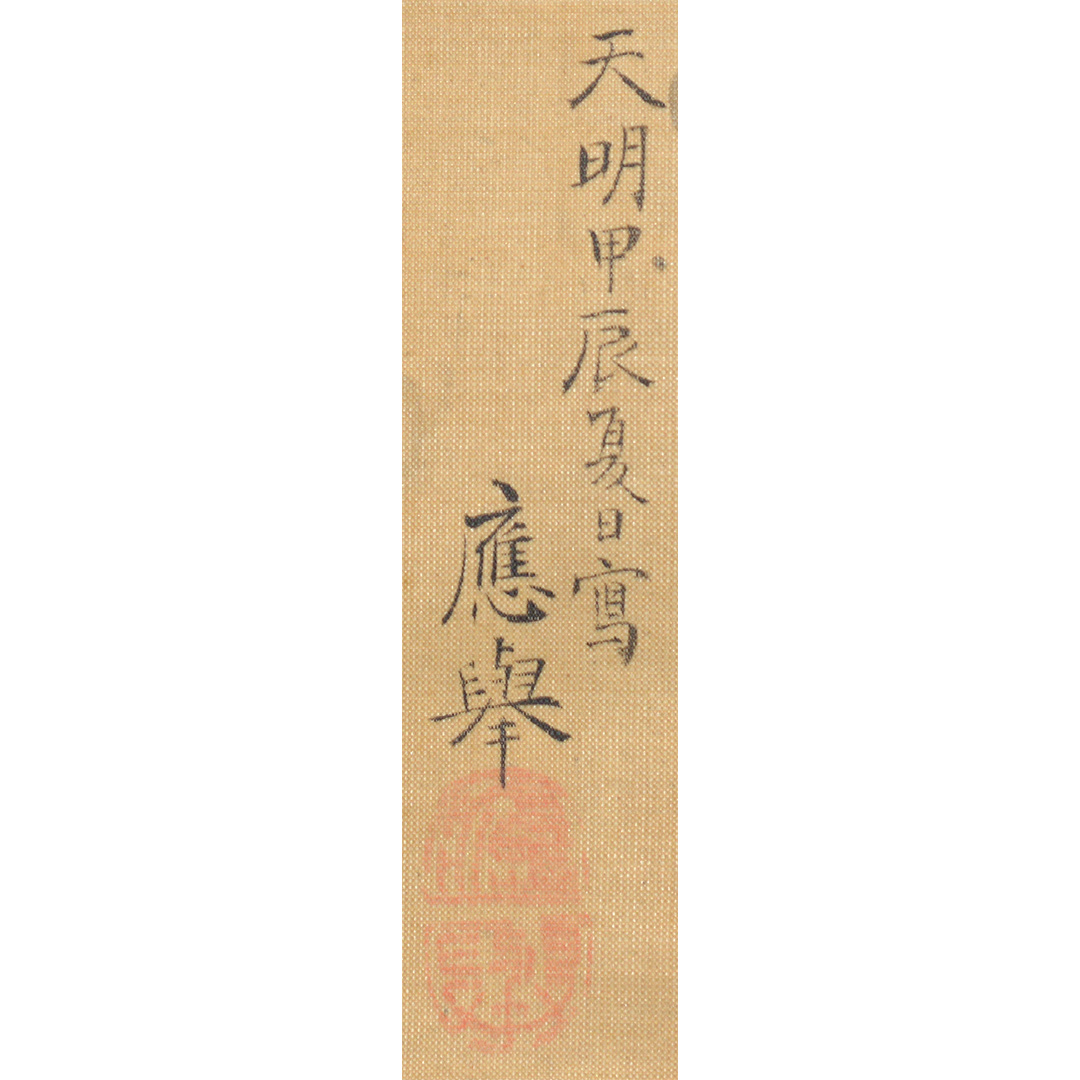 天明甲辰夏日寫
應舉